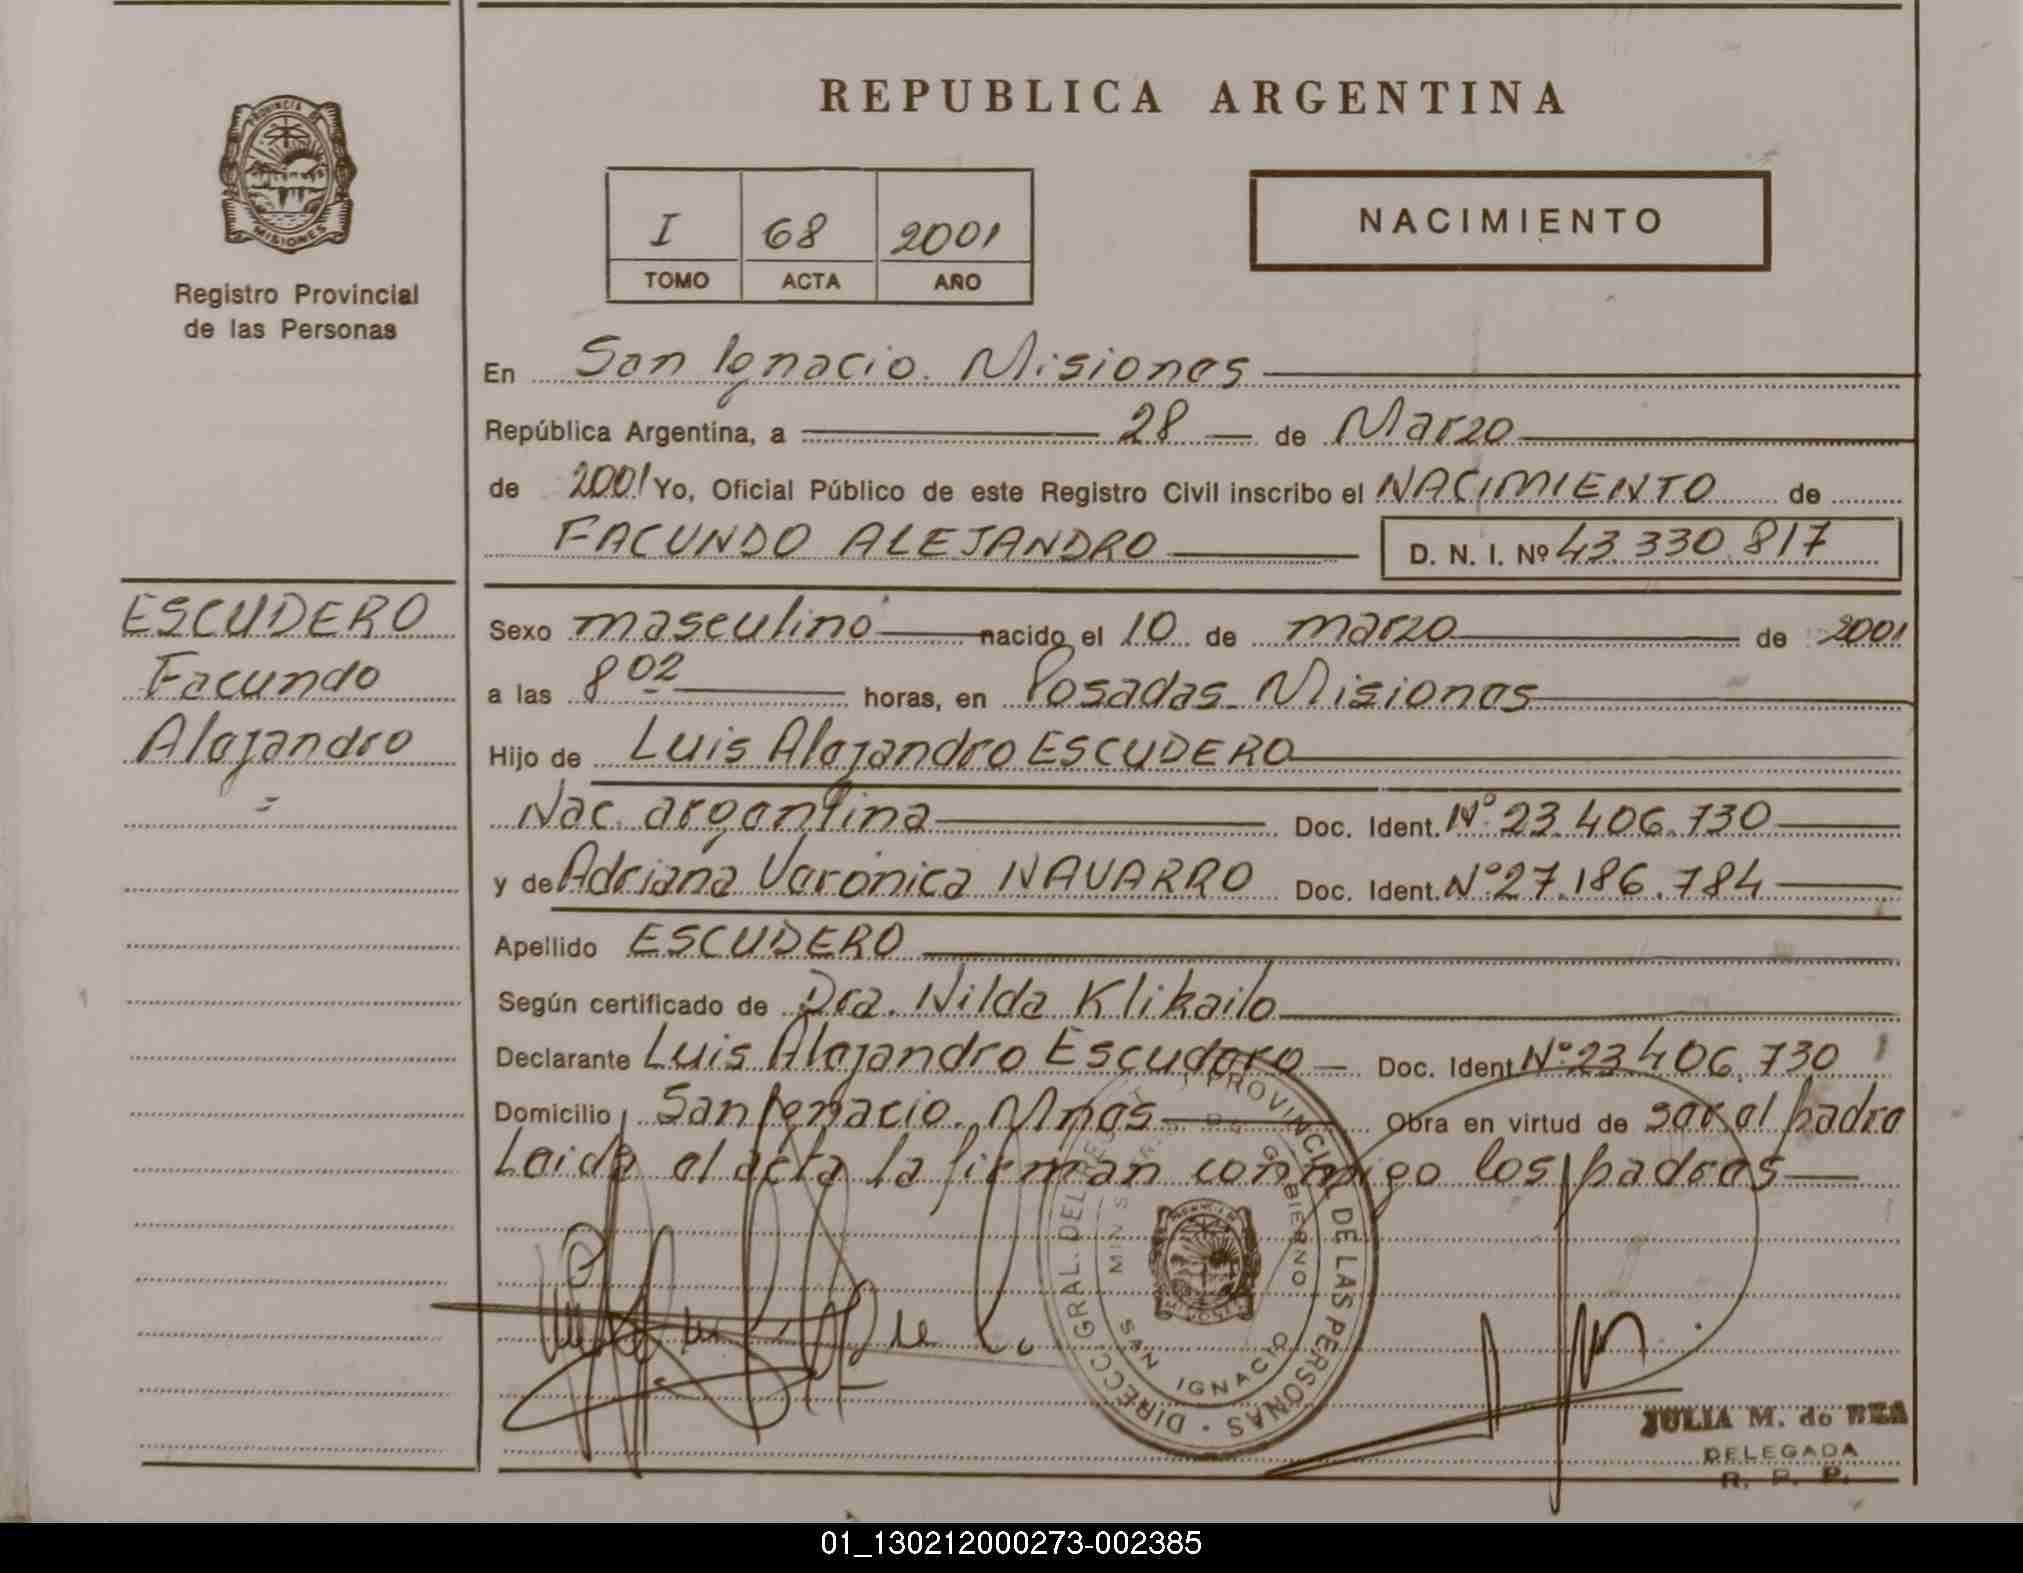 REPUBLICA ARGENTINA
PROVINCIA DE MISIONES
Registro Provincial
de las Personas
I 68 2001
TOMO ACTA AÑO
NACIMIENTO
En San Ignacio. Misiones
República Argentina, a 28 de Marzo
de 2001 Yo, Oficial Público de este Registro Civil inscribo el NACIMIENTO de
FACUNDO ALEJANDRO D. N. I. Nº 43.330.817
ESCUDERO
Facundo
Alejandro
Sexo masculino nacido el 10 de marzo de 2001
a las 8 02 horas, en Posadas. Misiones
Hijo de Luis Alejandro ESCUDERO
Nac. argentina Doc. Ident. Nº 23.406.730
y de Adriana Verónica NAVARRO Doc. Ident. Nº 27.186.784
Apellido ESCUDERO
Según certificado de Dra. Nilda Klikailo
Declarante Luis Alejandro Escudero Doc. Ident Nº 23.406.730
Domicilio San Ignacio. Mnes Obra en virtud de ser el padre
Leida el acta la firman conmigo los padres
DIRECC. GRAL. DEL REGIST. PROVINCIAL DE LAS PERSONAS
DE GOBIERNO
SAN IGNACIO
MISIONES
JULIA M. de
DELEGADA
R. P. P.
01_130212000273-002385